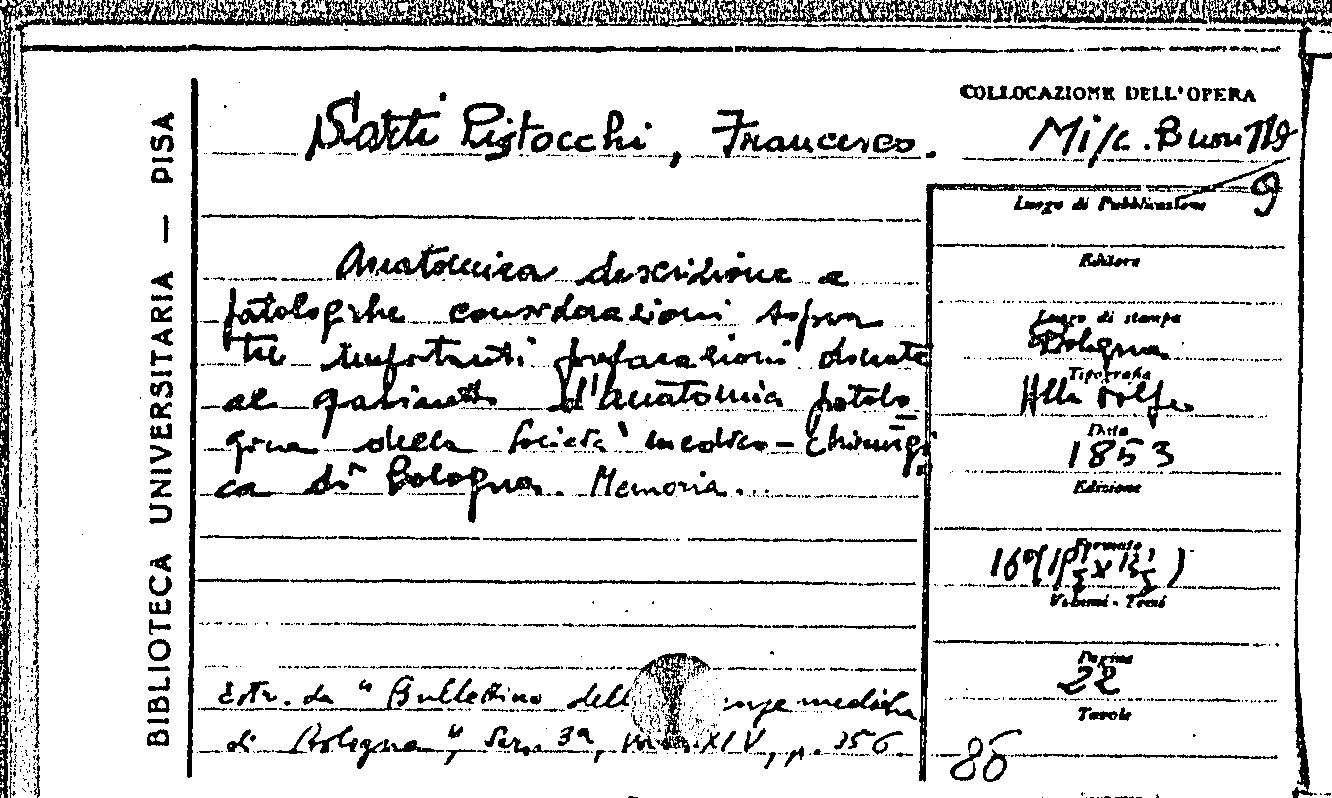 BIBLIOTECA UNIVERSITARIA — PISA
Sarti Pistocchi, Francesco.
Anatomica descrizione e
patologiche considerazioni sopra
tre importanti preparazioni donate
al gabinetto d'anatomia patolo
gica della Società medico-chirurgi
ca di Bologna. Memoria...
Estr. da "Bullettino dell mediche
di Bologna", Ser. 3a, XXIV, p. 356
COLLOCAZIONE DELL'OPERA
Misc. Buon
9
Luogo di Pubblicazione
Editore
Luogo di stampa
Bologna
Tipografia
Alla Volpe
Data
1853
Edizione
Formato
16°
Volumi - Tomi
Pagine
22
Tavole
86